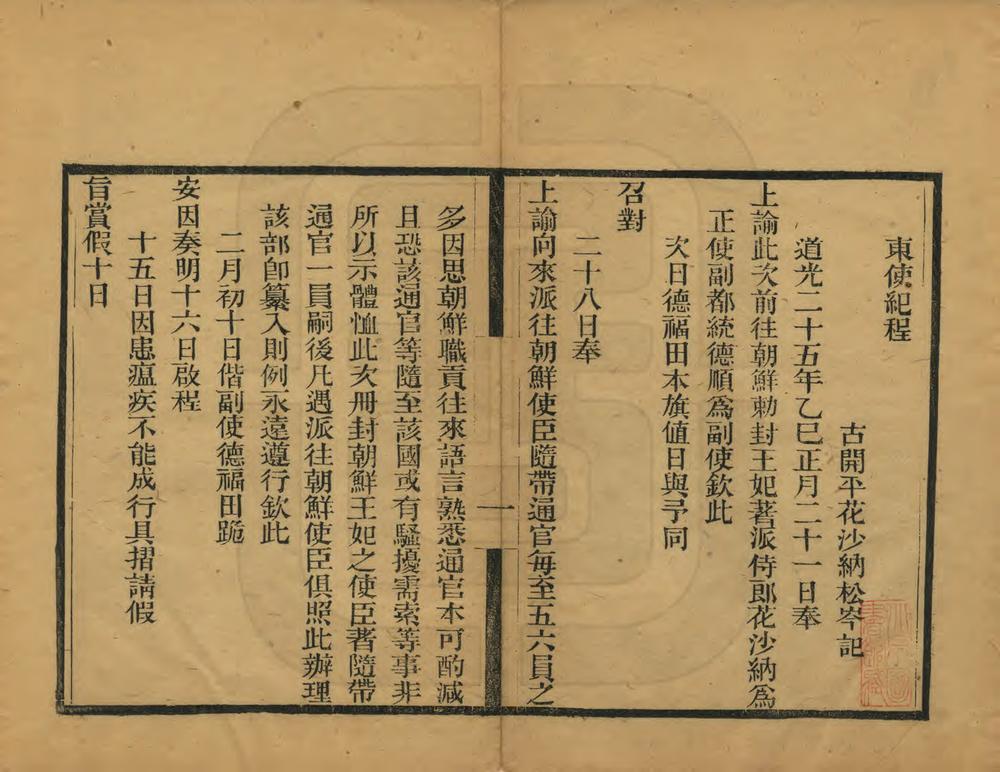 東使紀程
古開平花沙納松岑記
道光二十五年乙巳正月二十一日奉
上諭此次前往朝鮮勅封王妃著派侍郎花沙納為
正使副都統德順為副使欽此
次日德福田本旗值日與予同
召對
二十八日奉
上諭向來派往朝鮮使臣隨帶通官每至五六員之
多因思朝鮮職貢往來語言熟悉通官本可酌減
且恐該通官等隨至該國或有騷擾需索等事非
所以示體恤此次冊封朝鮮王妃之使臣著隨帶
通官一員嗣後凡遇派往朝鮮使臣俱照此辦理
該部卽纂入則例永遠遵行欽此
二月初十日偕副使德福田跪
安因奏明十六日啟程
十五日因患瘟疾不能成行具摺請假
旨賞假十日
一